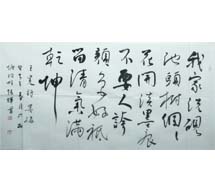 我家洗硯
池頭樹個々
花開淡墨痕
不要人誇
顏色好祇
留清氣滿
乾坤
王冕詩墨梅